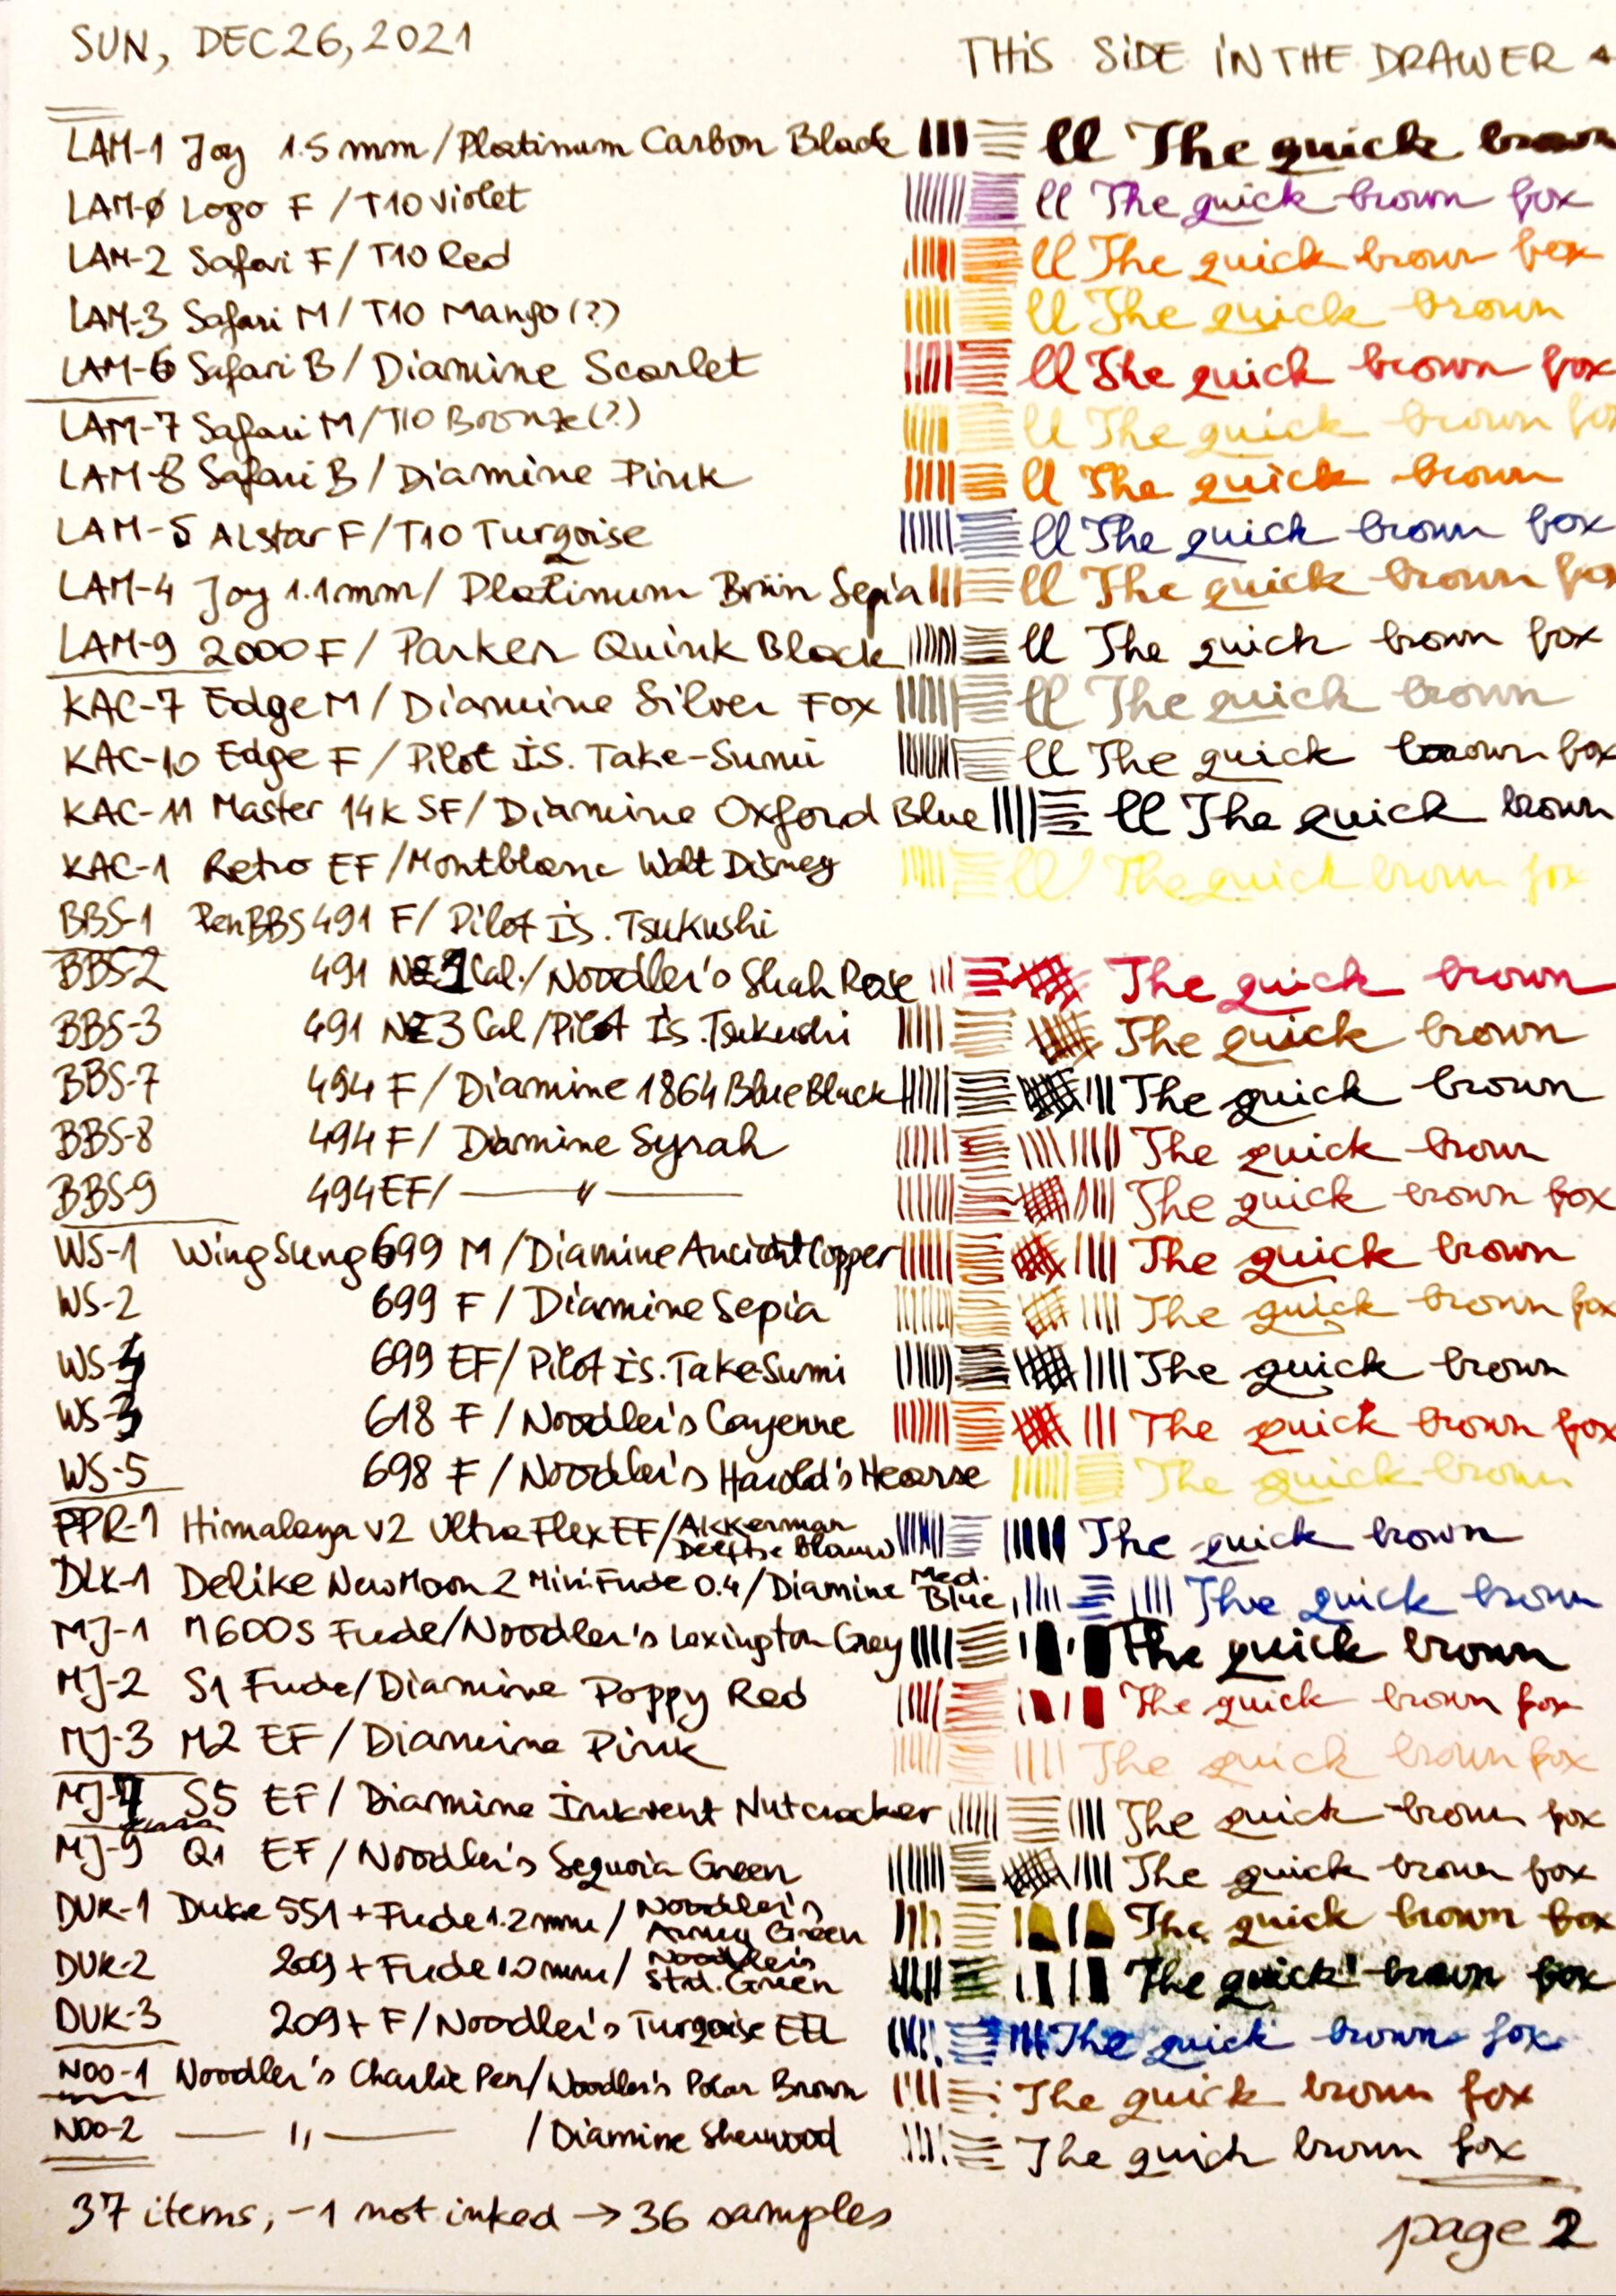 SUN, DEC 26, 2021
THiS SiDE iN THE DRAWER
LAM-1 Joy 1.5 mm / Platinum Carbon Black ll The quick brown
LAM-0 Logo F / T10 Violet ll The quick brown fox
LAM-2 Safari F / T10 Red ll The quick brown fox
LAM-3 Safari M / T10 Mango (?) ll The quick brown
LAM-6 Safari B / Diamine Scarlet ll The quick brown fox
LAM-7 Safari M / T10 Bronze (?) ll The quick brown fox
LAM-8 Safari B / Diamine Pink ll The quick brown
LAM-5 ALstar F / T10 Turqoise ll The quick brown fox
LAM-4 Joy 1.1mm / Platinum Brün Sepia ll The quick brown fox
LAM-9 2000 F / Parker Quink Black ll The quick brown fox
KAC-7 Edge M / Diamine Silver Fox ll The quick brown
KAC-10 Edge F / Pilot İS. Take-Sumi ll The quick brown fox
KAC-11 Master 14K SF / Diamine Oxford Blue ll The quick brown
KAC-1 Retro EF / Montblanc Walt Disney ll The quick brown fox
BBS-1 PenBBS 491 F / Pilot İS. Tsukushi
BBS-2 491 Cal. / Noodler's Shah Rose The quick brown
BBS-3 491 3 Cal / Pilot İs. Tsukushi The quick brown
BBS-7 494 F / Diamine 1864 Blue Black The quick brown
BBS-8 494 F / Diamine Syrah The quick brown
BBS-9 494 EF / —— " —— The quick brown fox
WS-1 WingSung 699 M / Diamine Ancient Copper The quick brown
WS-2 699 F / Diamine Sepia The quick brown fox
WS-4 699 EF / Pilot İs. Take-Sumi The quick brown
WS-3 618 F / Noodler's Cayenne The quick brown fox
WS-5 698 F / Noodler's Harold's Hearse The quick brown
PPR-1 Himalaya v2 Ultra Flex EF / Akkerman Delftse Blauw The quick brown
DLK-1 Delike New Moon 2 Mini Fude 0.4 / Diamine Med. Blue The quick brown
MJ-1 M600S Fude / Noodler's Lexington Grey The quick brown
MJ-2 S1 Fude / Diamine Poppy Red The quick brown fox
MJ-3 M2 EF / Diamine Pink The quick brown fox
MJ-4 S5 EF / Diamine İnkvent Nutcracker The quick brown fox
MJ-9 Q1 EF / Noodler's Sequoia Green The quick brown fox
DUK-1 Duke 551 + Fude 1.2 mm / Noodler's Army Green The quick brown fox
DUK-2 209 + Fude 1.0 mm / Noodler's Std. Green The quick brown fox
DUK-3 209 + F / Noodler's Turqoise EEL The quick brown fox
NOO-1 Noodler's Charlie Pen / Noodler's Polar Brown The quick brown fox
NOO-2 —— " —— / Diamine Sherwood The quick brown fox
37 items, -1 not inked → 36 samples
page 2